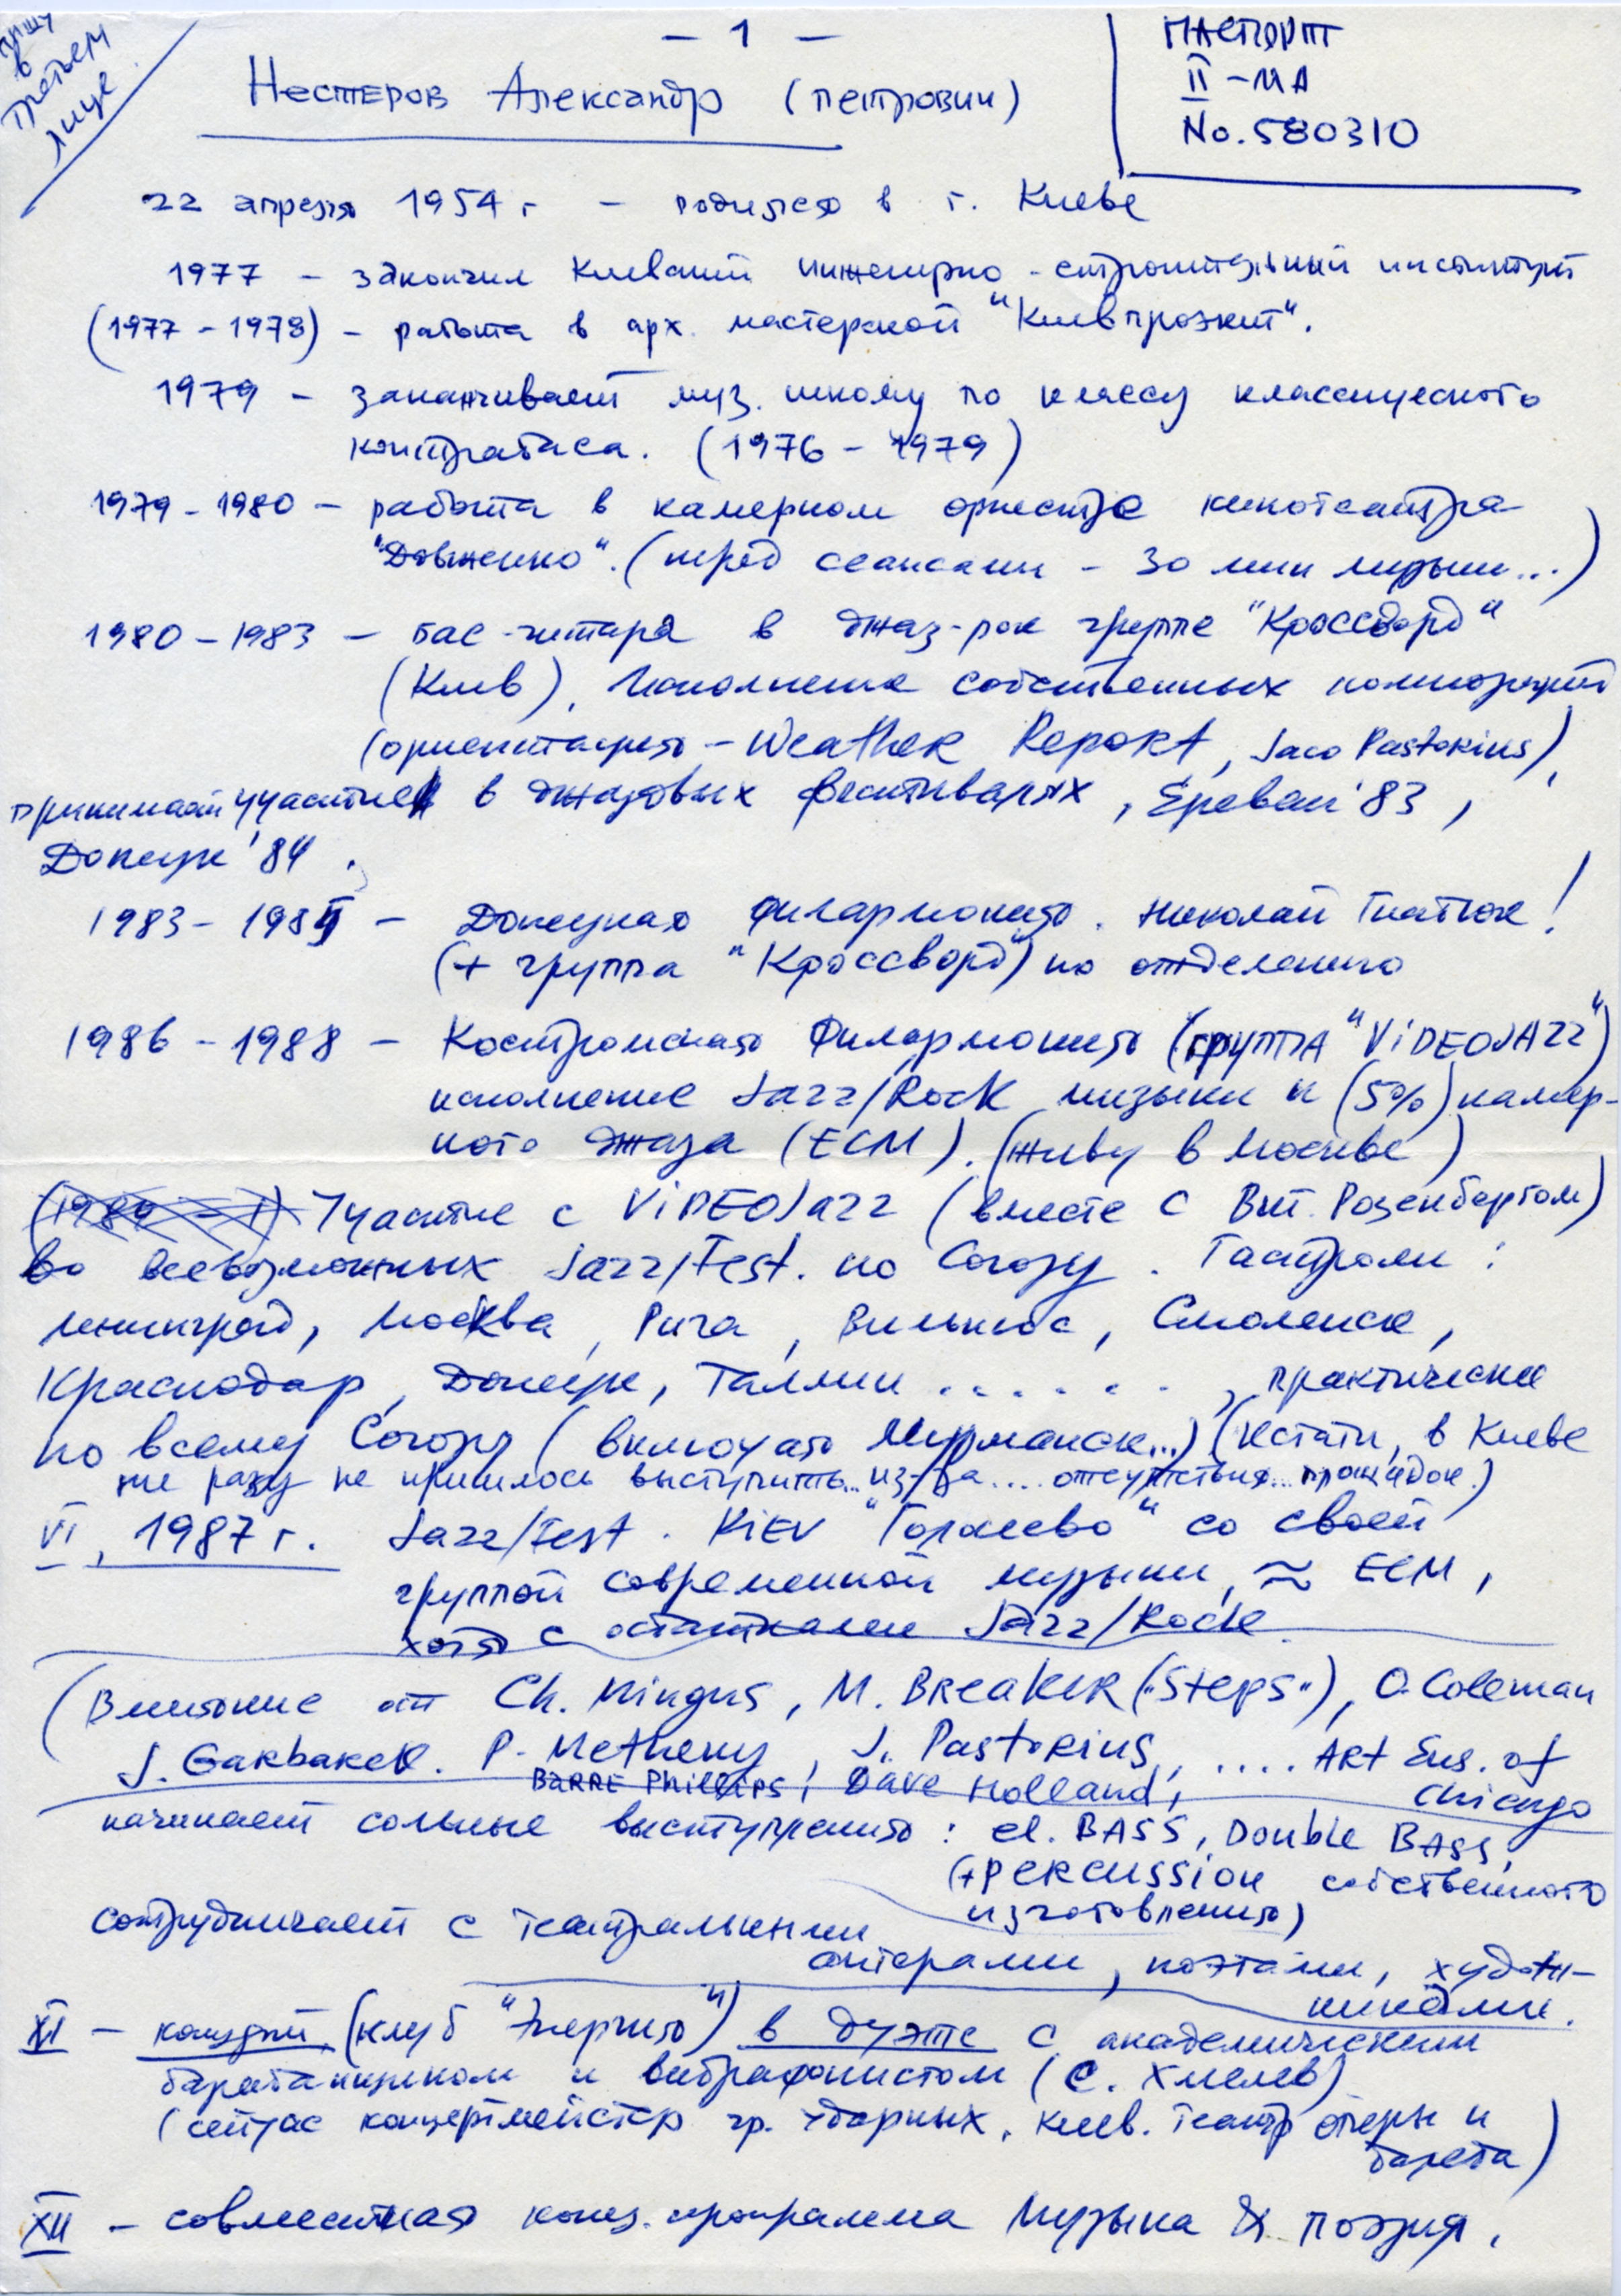 — 1 —
пишу
в
третьем
лице
ПАСПОРТ
II – МА
No. 580310
Нестеров Александр (петрович)
22 апреля 1954 г – родился в г. Киеве
1977 – закончил Киевский инженерно-строительный институт
(1977 – 1978) – работа в арх. мастерской "Киевпроэкт".
1979 – заканчивает муз. школу по классу классического
контрабаса. (1976 – 1979)
1979 - 1980 – работа в камерном оркестре кинотеатра
"Довженко". (перед сеансами – 30 мин музыки...)
1980 – 1983 – бас-гитара в джаз-рок группе "Кроссворд"
(Киев), Исполнение собственных композиций
(ориентация – Weather Report, Jaco Pastorius),
принимает участие в джазовых фестивалях, Ереван '83,
Донецк '84.
1983 – 1985 – Донецкая филармония. Николай Гнатюк!
(+ группа "Кроссворд") по отделению
1986 – 1988 – Костромская Филармония (группа "ViDEOJAZZ")
исполнение Jazz/Rock музыки и (5%) камер-
ного джаза (ECM). (живу в Москве)
(1989 – 1) Участие с ViDEOJazz (вместе с Вит. Розенбергом)
во всевозможных Jazz/Fest. по Союзу. Гастроли:
Ленинград, Москва, Рига, Вильнюс, Смоленск,
Краснодар, Донецк, Таллин . . . . . . , практически
по всему Союзу (включая Мурманск...) (кстати, в Киеве
ни разу не пришлось выступить.. из-за .... отсутствия... площадок.)
VI, 1987 г. Jazz/Fest. KiEV "Голосеево" со своей
группой современной музыки, ≈ ECM,
хотя с остатками Jazz/Rock.
(Влияние от Ch. Mingus, M. BReaKeR ("Steps"), O. Coleman
J. GaRbaReK. P. Metheny, J. PastoRius, .... ARt Ens. of
Chicago
BaRRE Phillips, Dave Holland,
начинает сольные выступления: el. BASS, Double BASS,
(+ PeRcussion собственного
изготовления)
сотрудничает с театральными
актерами, поэтами, худож-
никами.
XI – концерт (клуб "Энергия") в дуэте с академическим
барабанщиком и вибрафонистом (С. Хмелев)
(сейчас концертмейстер гр. ударных, Киев. театр оперы и
балета)
XII – совместная конц. программа Музыка & поэзия.